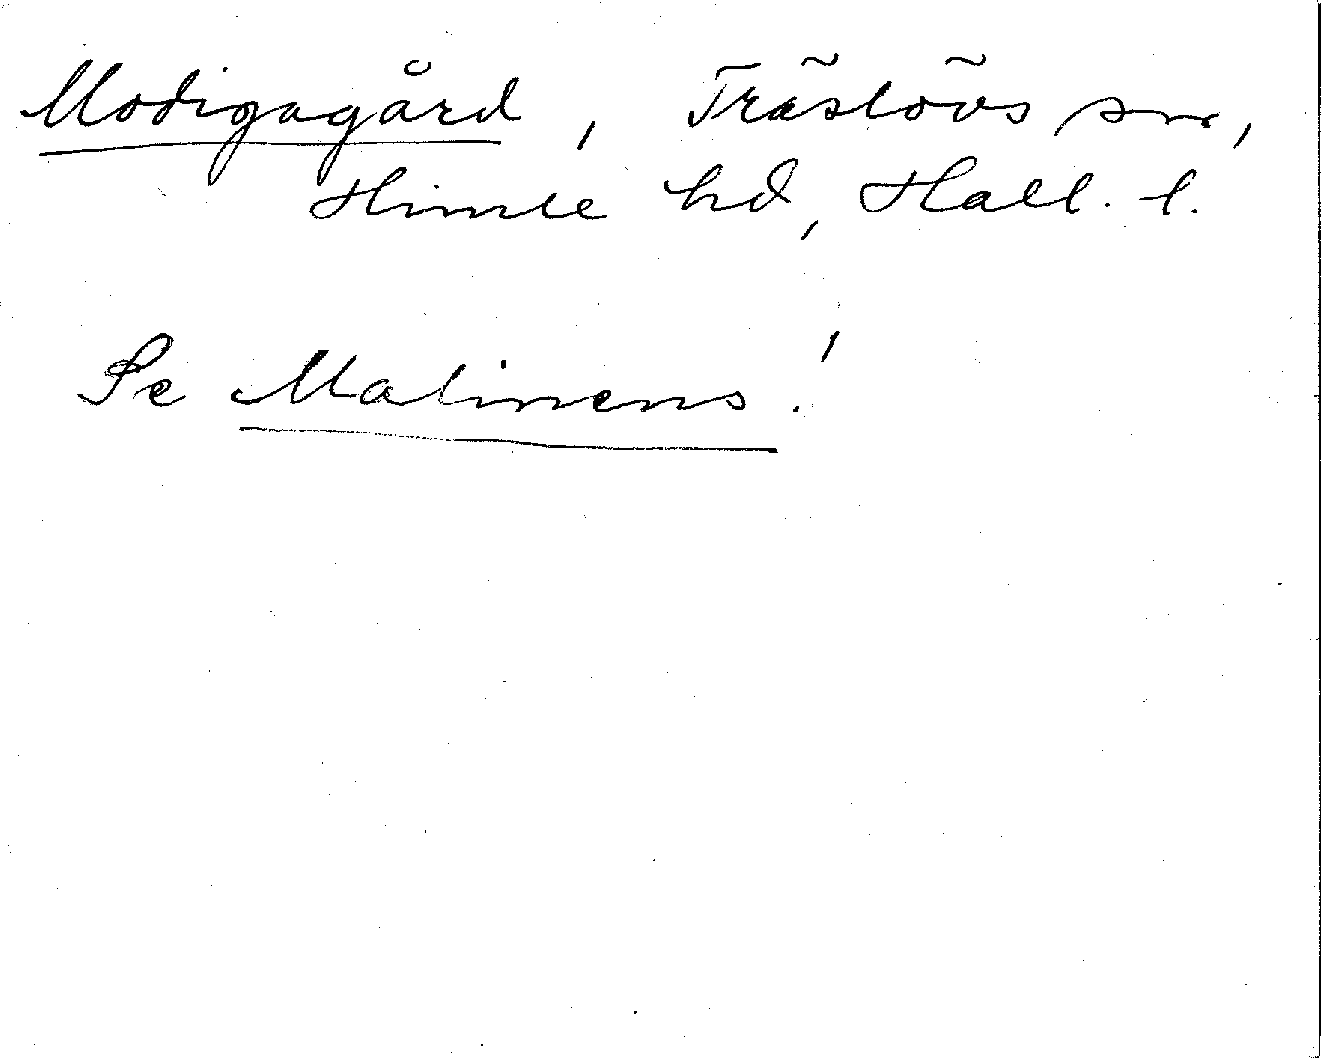 Modigagård, Träslövs sn,
Himle hd, Hall. l.
Se Malinens!